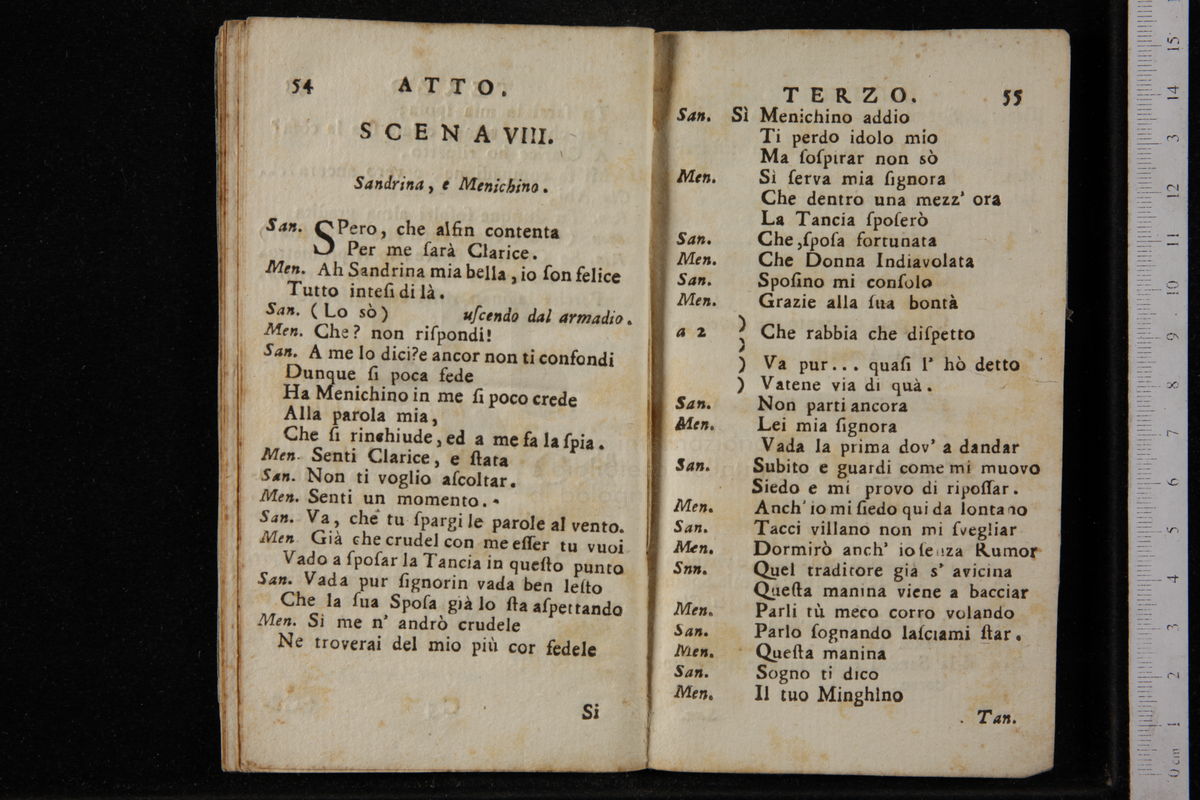 54 ATTO.
SCENA VIII.
Sandrina, e Menichino.
San. SPero, che alfin contenta
Per me ſarà Clarice.
Men. Ah Sandrina mia bella, io ſon felice
Tutto inteſi di là.
San. (Lo sò) uſcendo dal armadio.
Men. Che? non riſpondi!
San. A me lo dici?e ancor non ti confondi
Dunque ſi poca fede
Ha Menichino in me ſi poco crede
Alla parola mia,
Che ſi rinchiude, ed a me fa la ſpia.
Men. Senti Clarice, e ſtata
San. Non ti voglio aſcoltar.
Men. Senti un momento.
San. Va, che tu ſpargi le parole al vento.
Men Già che crudel con me eſſer tu vuoi
Vado a ſpoſar la Tancia in queſto punto
San. Vada pur ſignorin vada ben leſto
Che la ſua Spoſa già lo ſta aſpettando
Men. Si me n' andrò crudele
Ne troverai del mio più cor fedele
Si
TERZO. 55
San. Sì Menichino addio
Ti perdo idolo mio
Ma ſoſpirar non sò
Men. Si ſerva mia ſignora
Che dentro una mezz' ora
La Tancia ſpoſerò
San. Che,ſpoſa fortunata
Men. Che Donna Indiavolata
San. Spoſino mi conſolo
Men. Grazie alla ſua bontà
a 2 ) Che rabbia che diſpetto
)
) Va pur... quaſi l' hò detto
) Vatene via di quà.
San. Non parti ancora
Men. Lei mia ſignora
Vada la prima dov' a dandar
San. Subito e guardi come mi muovo
Siedo e mi provo di ripoſſar.
Men. Anch' io mi ſiedo qui da lontano
San. Tacci villano non mi ſvegliar
Men. Dormirò anch' io ſenza Rumor
Snn. Quel traditore già s' avicina
Queſta manina viene a bacciar
Men. Parli tù meco corro volando
San. Parlo ſognando laſciami ſtar.
Men. Queſta manina
San. Sogno ti dico
Men. Il tuo Minghino
Tan.